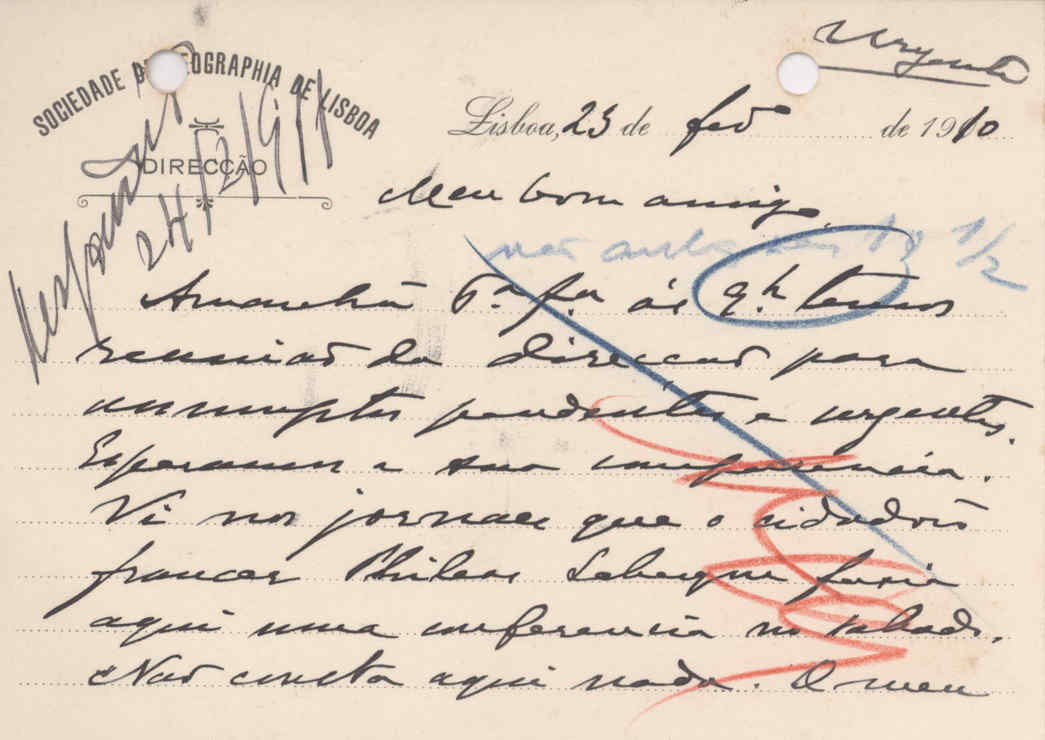 Urgente
SOCIEDADE DE GEOGRAPHIA DE LISBOA
DIRECCÃO
Lisboa, 23 de fevº de 1910
Meu bom amigo
não antes das 10 1/2
Amanhã 6ª fª ás 9h temos
reunião da direcção para
assumptos pendentes e urgentes.
Esperamos a sua comparencia.
Vi nos jornaes que o cidadão
francez faria
aqui uma conferencia no sabado.
Não consta aqui nada. O meu
24/2/911